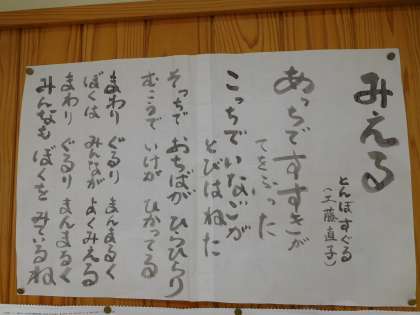 みえる
とんぼすぐる
(工藤直子)
あっちですすきが
てをふった
こっちでいなごが
とびはねた
そっちで おちばが ひらひらり
むこうで いけが ひかってる
まわり ぐるり まんまるく
ぼくは みんなが よくみえる
まわり ぐるり まんまるく
みんなも ぼくを みているね